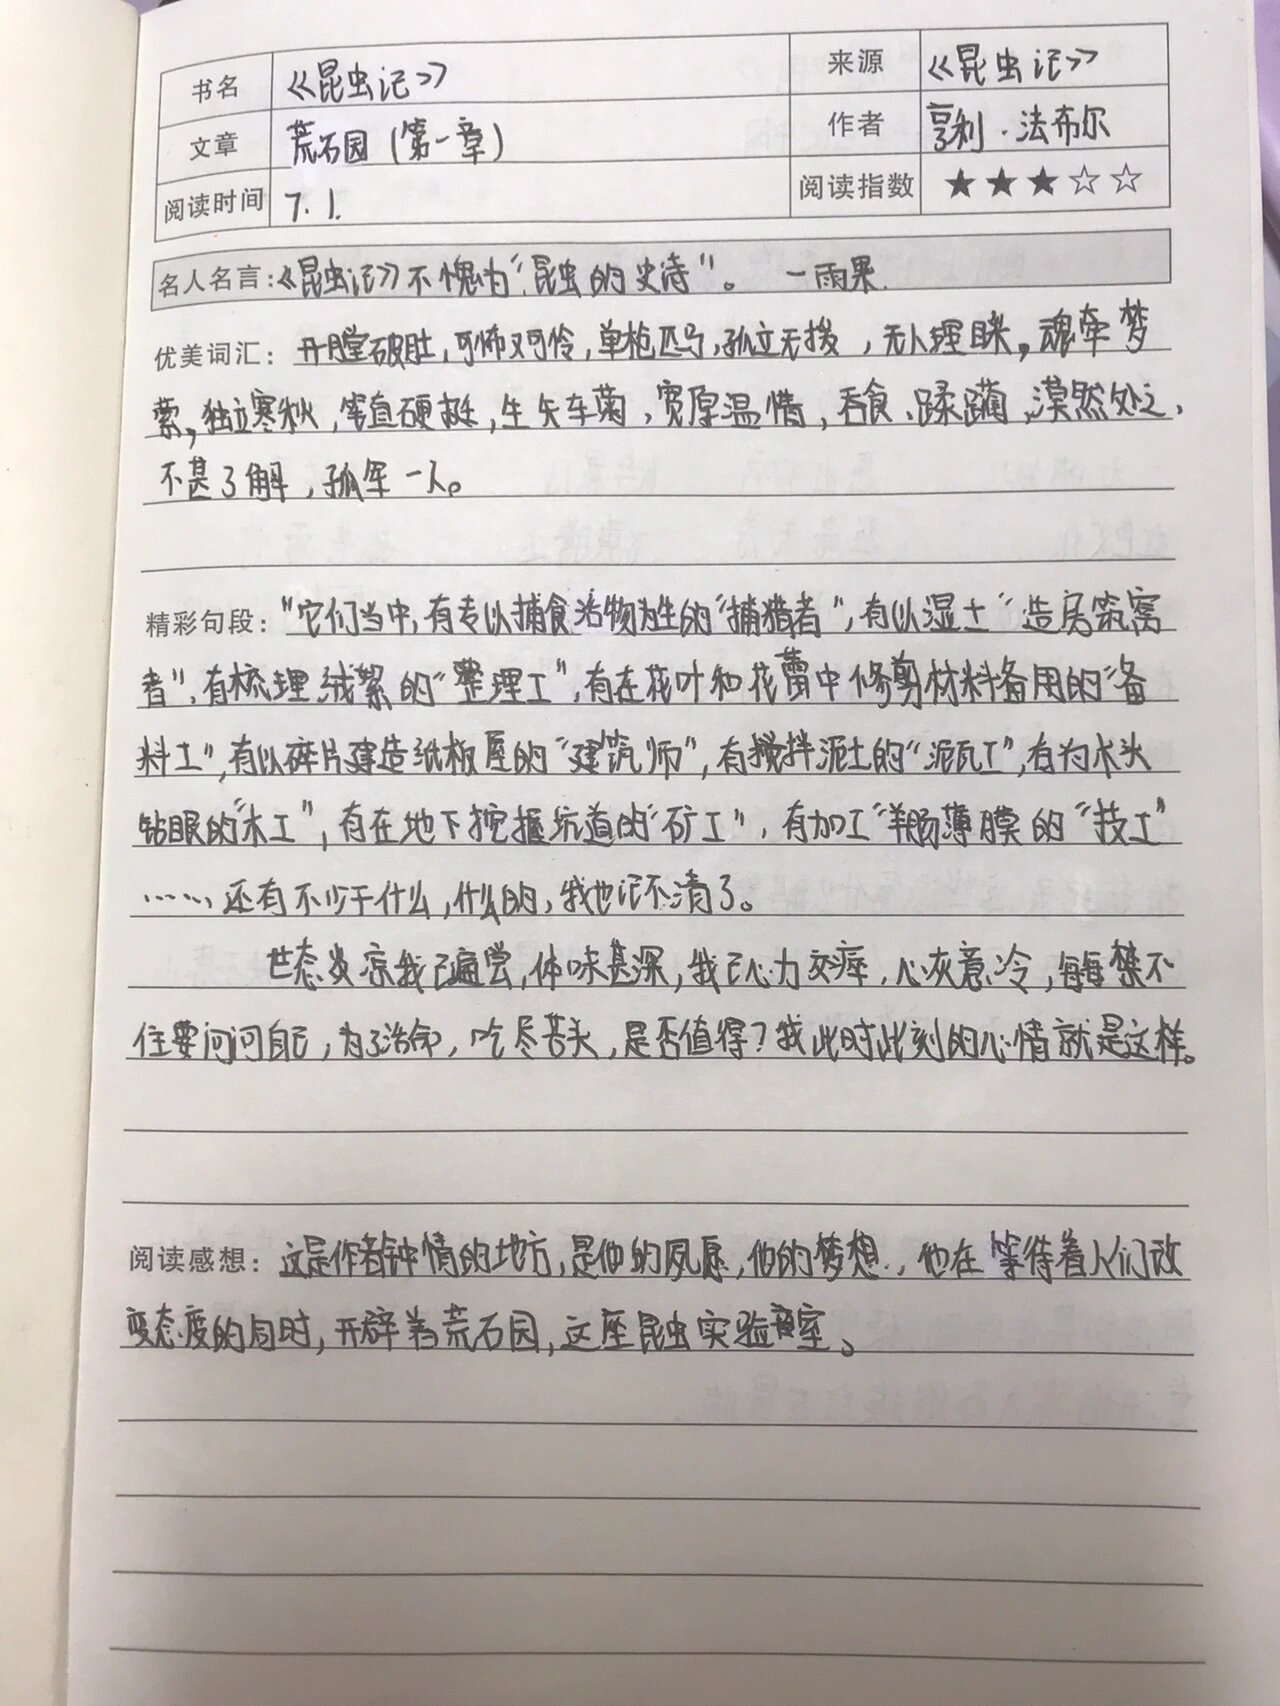 书名 《昆虫记》 来源 《昆虫记》
文章 荒石园(第一章) 作者 亨利·法布尔
阅读时间 7.1. 阅读指数 ★★★☆☆
名人名言:《昆虫记》不愧为"昆虫的史诗"。 —雨果.
优美词汇: 开膛破肚,可怖又可怜,单枪匹马,孤立无援,无人理睬,魂牵梦
萦,独立寒秋,笔直硬挺,生矢车菊,宽厚温情,吞食、蹂躏,漠然处之,
不甚了解,孤军一人。
精彩句段: "它们当中,有专以捕食活物为生的"捕猎者",有以湿土"造房筑窝
者",有梳理绒絮的"整理工",有在花叶和花蕾中修剪材料备用的"备
料工",有以碎片建造纸板屋的"建筑师",有搅拌泥土的"泥瓦工",有为木头
钻眼的"木工",有在地下挖掘坑道的"矿工",有加工"羊肠薄膜的"技工"
……还有不少干什么,什么的,我也记不清了。
世态炎凉我已遍尝,体味甚深,我已心力交瘁,心灰意冷,每每禁不
住要问问自己,为了活命,吃尽苦头,是否值得?我此时此刻的心情就是这样。
阅读感想: 这是作者钟情的地方,是他的夙愿,他的梦想,他在等待着人们改
变态度的同时,开辟着荒石园,这座昆虫实验室。